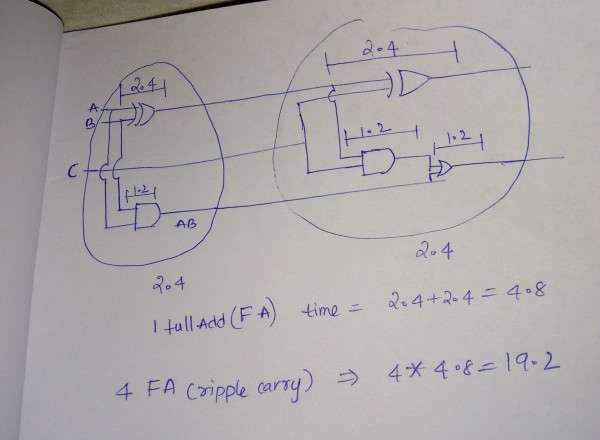 2.4
2.4
A
B
1.2
1.2
C
1.2
AB
2.4
2.4
1 fullAdd (FA) time = 2.4+2.4 = 4.8
4 FA (ripple carry) ⇒ 4* 4.8 = 19.2